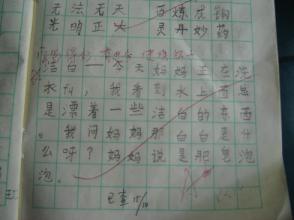 无法无天 百炼成钢
光明正大 灵丹妙药
洁白一今天妈妈正在洗
衣, 我看到水上面总
是漂着一些洁白的东西
。我问妈妈那白白是什
么呀?妈妈说是肥皂泡
泡。
已享 15/10